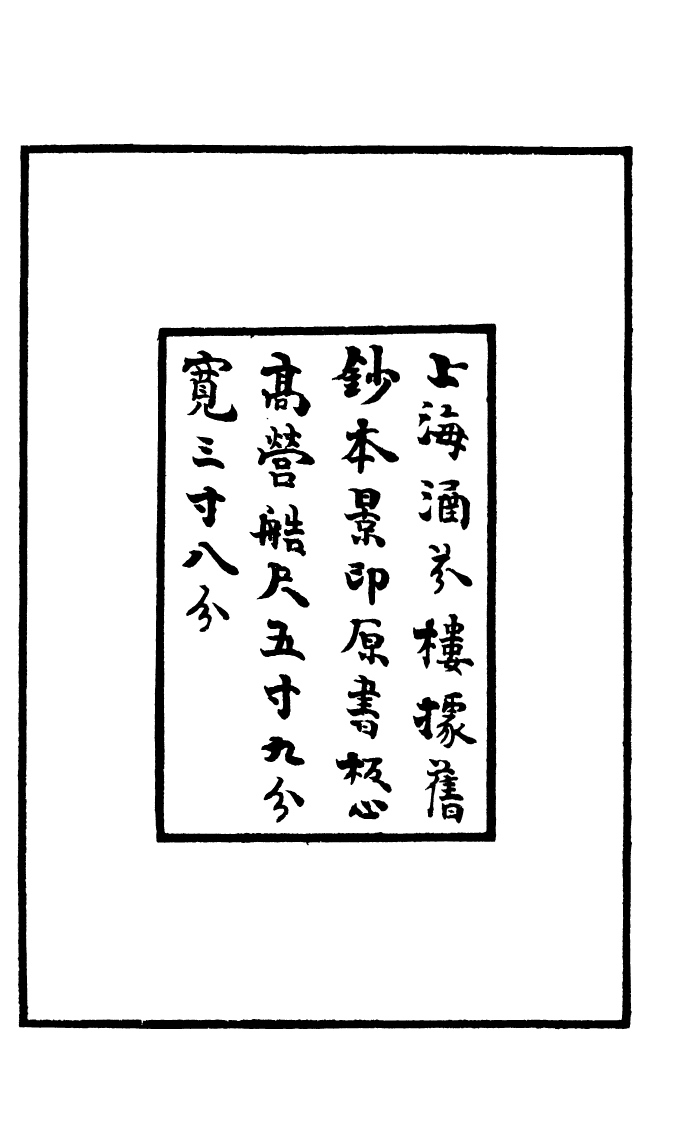 上海涵芬樓據舊
鈔本景印原書板心
高營造尺五寸九分
寬三寸八分